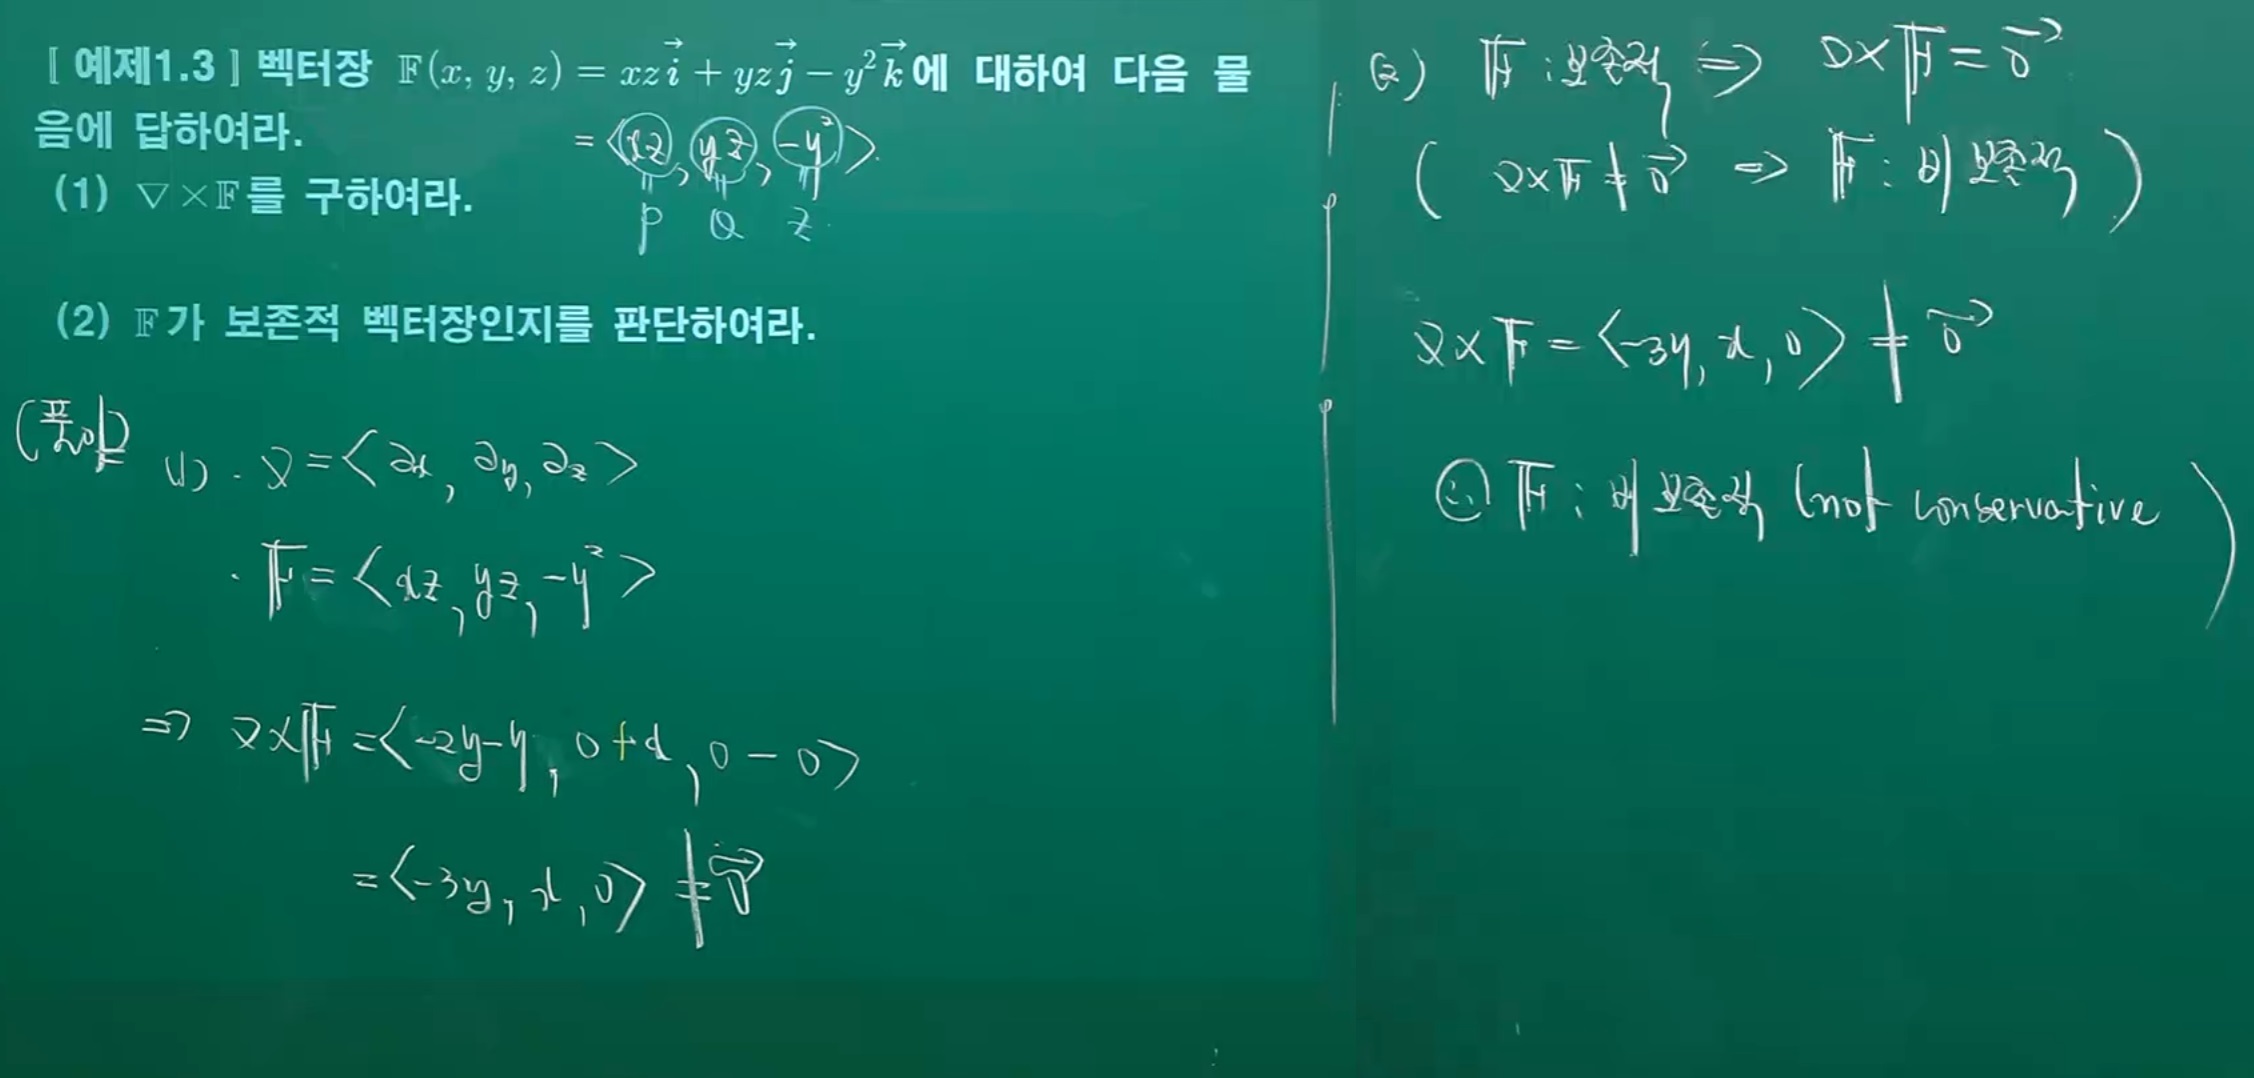 [ 예제1.3 ] 벡터장 𝔽(x, y, z) = xz i⃗ + yz j⃗ − y² k⃗ 에 대하여 다음 물
음에 답하여라.
= <xz, yz, -y²>
P Q Z
(1) ∇×𝔽를 구하여라.
(2) 𝔽가 보존적 벡터장인지를 판단하여라.
(풀이)
(1) · ∇ = <∂x, ∂y, ∂z>
· 𝔽 = <xz, yz, -y²>
⇒ ∇×𝔽 = <-2y-y, 0+x, 0-0>
= <-3y, x, 0> ≠ 0⃗
(2) 𝔽 : 보존적 ⇒ ∇×𝔽 = 0⃗
( ∇×𝔽 ≠ 0⃗ ⇒ 𝔽 : 비보존적 )
∇×𝔽 = <-3y, x, 0> ≠ 0⃗
∴ 𝔽 : 비보존적 (not conservative)